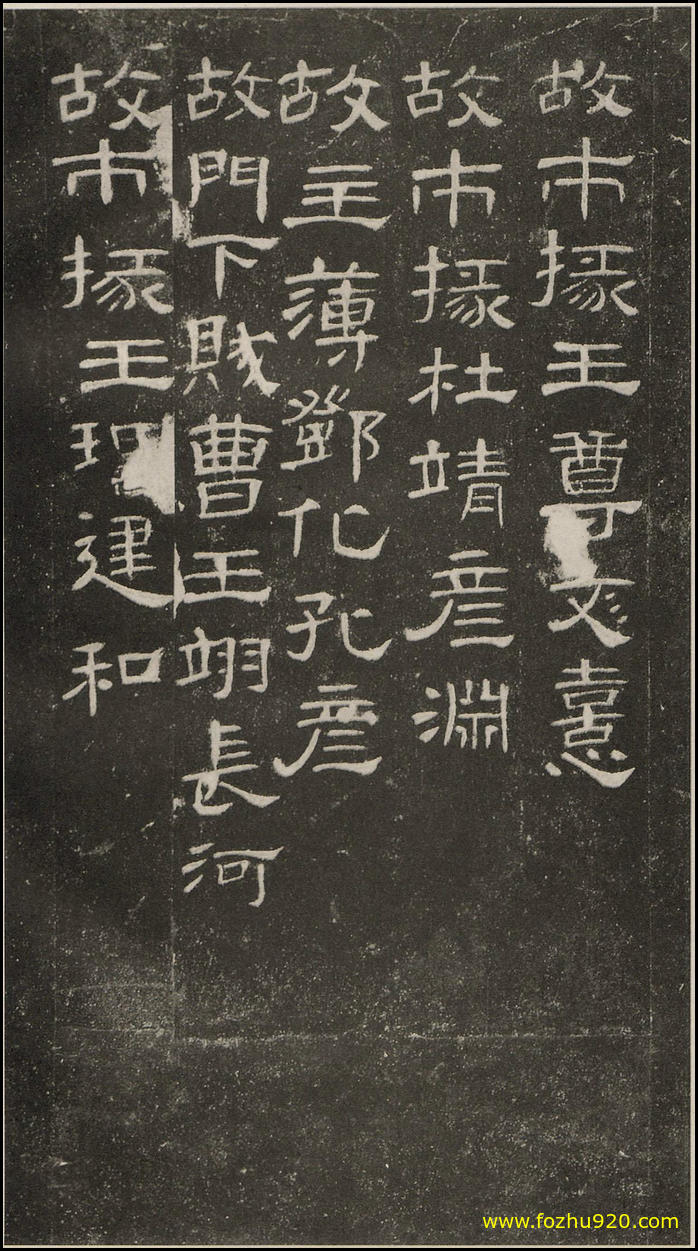 故市掾王尊文憙
故市掾杜靖彥淵
故主薄鄧化孔彥
故門下賊曹王翊長河
故市掾王建和
www.fozhu920.com